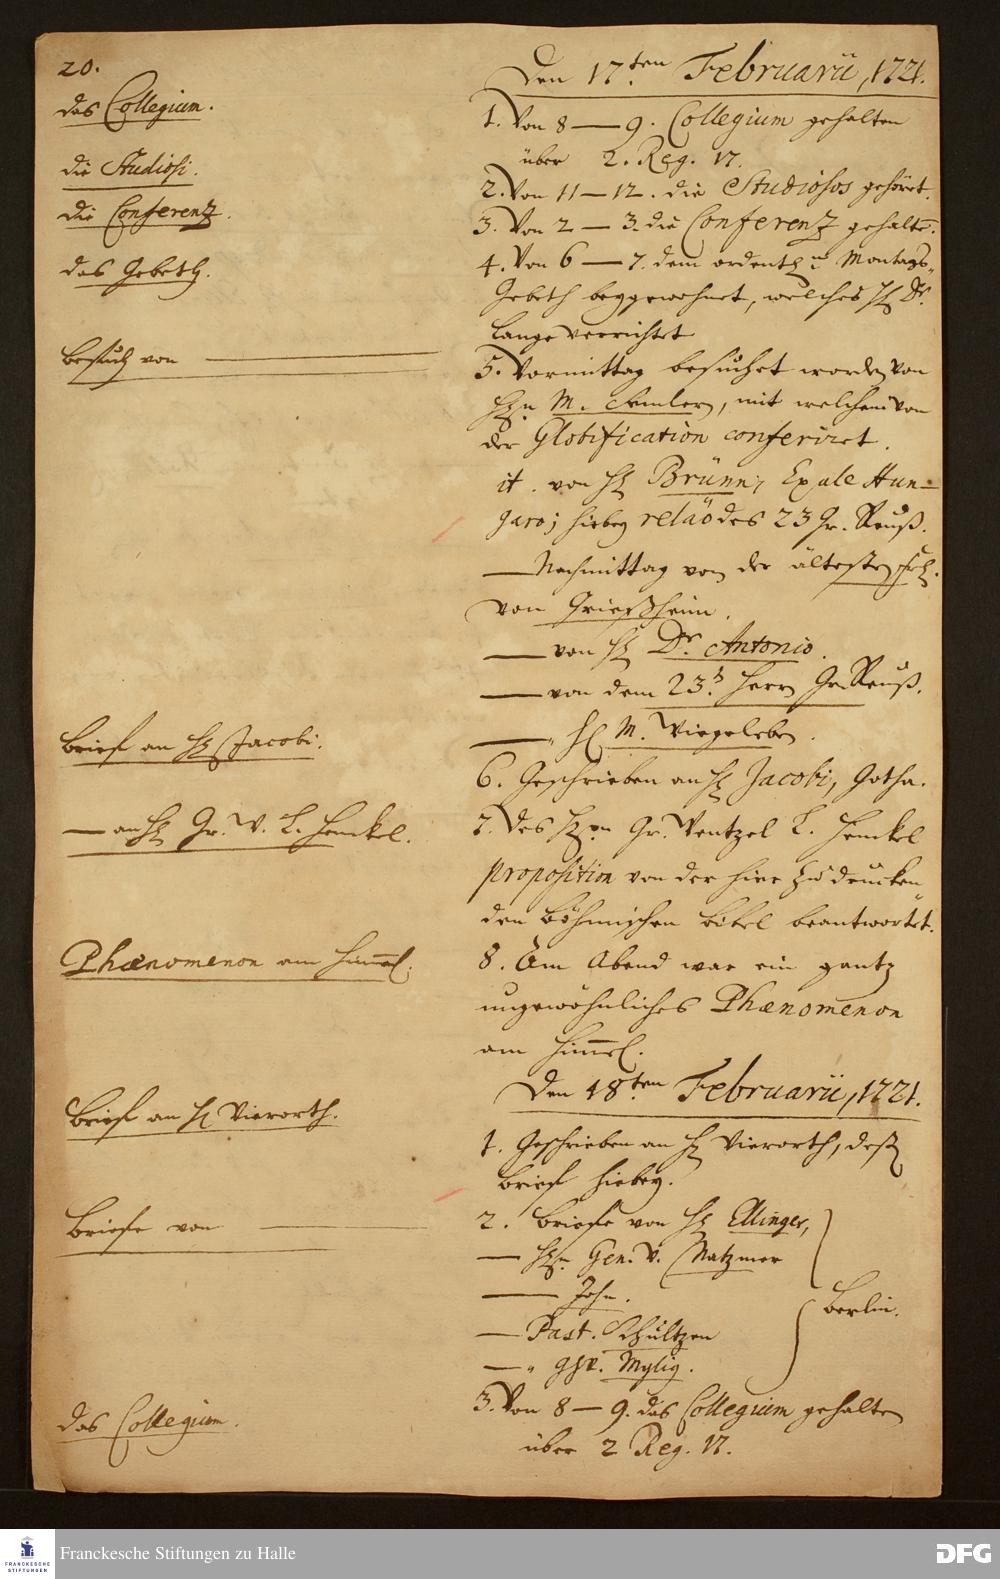 20.
Den 17.ten Februarii, 1721.
das Collegium.
1. Von 8 — 9. Collegium gehalten
über 2. Reg. 17.
die Studiosi.
2. Von 11 — 12. die Studiosos gehöret.
die Conferenz.
3. Von 2 — 3. die Conferenz gehalten.
das Gebeth.
4. Von 6 — 7. dem ordentl. Montags-
Gebeth beygewohnet, welches H. Dr.
Lange verrichtet
besuch von
5. Vormittag besuchet worden von
H.n M. Semlern, mit welchem von
der Glossification conferiret.
it. von H. Brünn, Exule Hun-
garo; hiebey des 23 Gr. Reuß.
— Nachmittag von der ältesten Frl.
von Grießheim.
— von H. Dr. Antonio.
— von dem 23. Herrn Gr. Reuß.
— " H. M. Wiegeleben.
Brief an H. Jacobi.
6. Geschrieben an H. Jacobi, Gotha.
— an H. Gr. W. L. Henckel.
7. Des H.n Gr. Wentzel L. Henckel
proposition von der hier zu drucken-
den böhmischen bibel beantwortet.
Phænomenon am Himmel.
8. Am Abend war ein gantz
ungewöhnliches Phænomenon
am Himmel.
Den 18.ten Februarii, 1721.
Brief an H. Vierorth.
1. Geschrieben an H. Vierorth, deß
brief hiebey.
Briefe von
2. Briefe von H. Ellinger,
— H.n Gen. v. Natzmer
— John.
Berlin.
— Past. Schultzen
— " Mylig.
das Collegium.
3. Von 8 — 9. das Collegium gehalten
über 2 Reg. 17.
Franckesche Stiftungen zu Halle
FRANCKESCHE
STIFTUNGEN
DFG